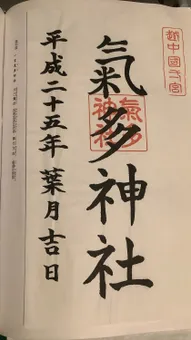 越中國弌宮
氣多神社
氣多
神社
平成二十五年 葉月吉日